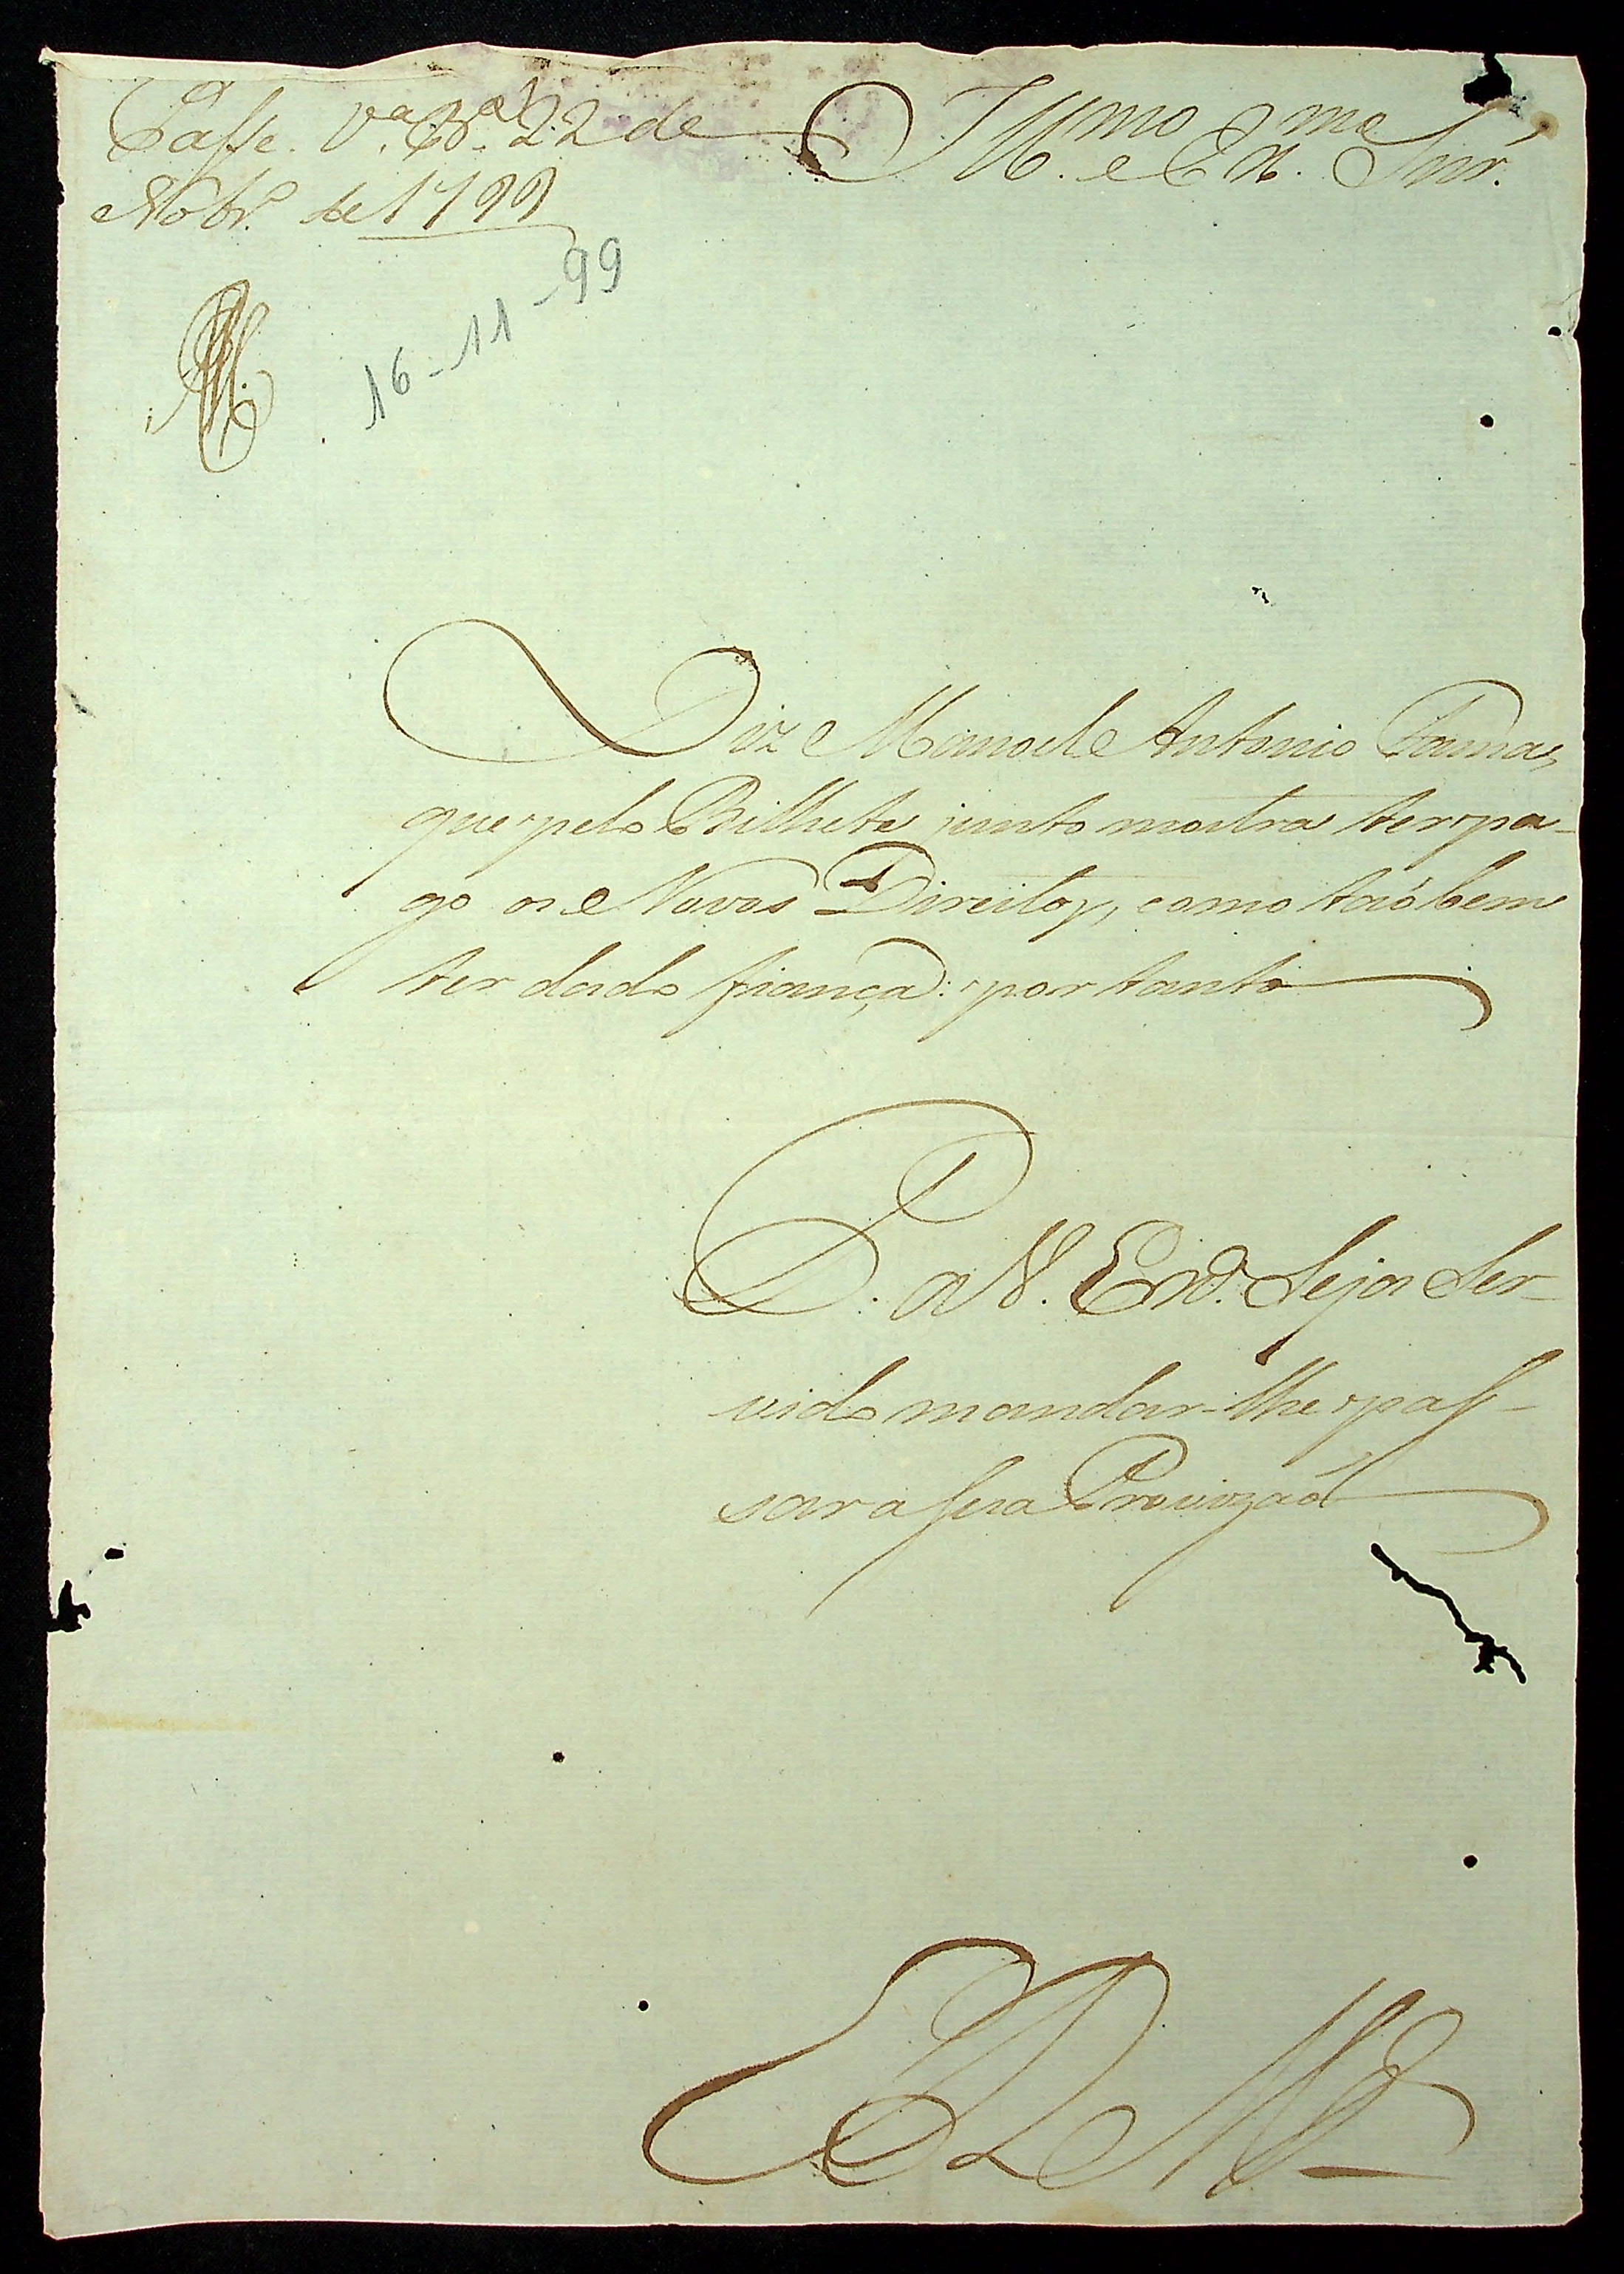 Passe. V.ª B.ª 22 de
Nobr.º de 1799
Ill.mo e Ex.mo Snr.
16-11-99
Diz Manoel Antonio Fama,
que pelo Bilhete junto mostra ter pa-
go os Novos Direitos, como taóbem
ter dado fiança: por tanto
P. a V. Ex.ª Seja Ser-
vido mandar-lhe pas-
sar a sua Provizaõ
E R M.ce